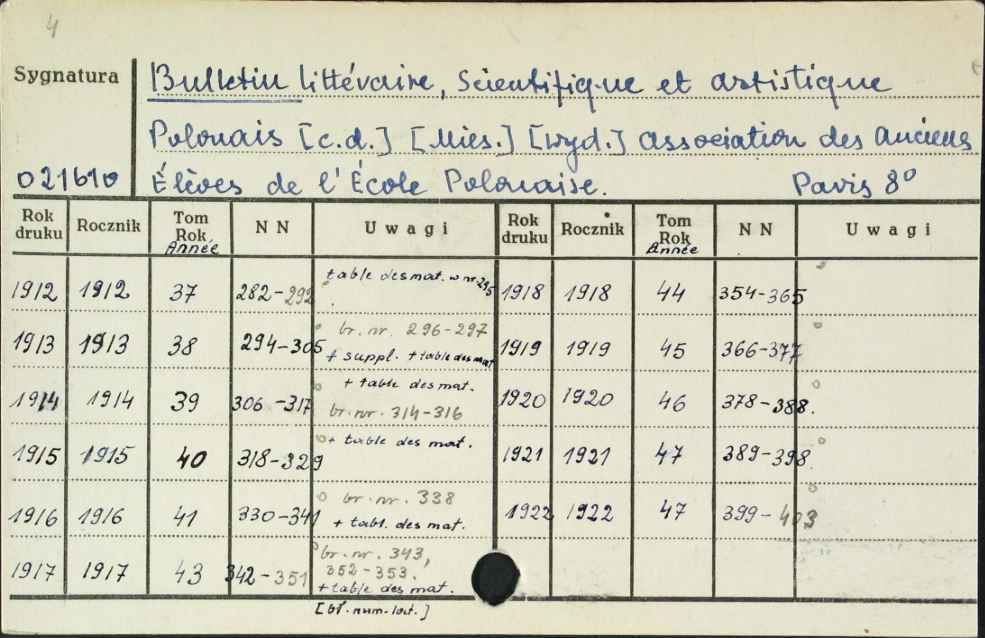 4
Sygnatura
Bulletin littéraire, Scientifique et artistique
Polonais [c.d.] [Mies.] [wyd.] Association des Anciens
021610 Élèves de l'École Polonaise. Paris 8°
Rok druku Rocznik Tom Rok Année N N Uwagi Rok druku Rocznik Tom Rok Année N N Uwagi
1912 1912 37 282-292 table des mat. w nr. 295 1918 1918 44 354-365
1913 1913 38 294-305 br. nr. 296-297 + suppl. + table des mat 1919 1919 45 366-377
1914 1914 39 306-317 + table des mat. br. nr. 314-316 1920 1920 46 378-388.
1915 1915 40 318-329 + table des mat. 1921 1921 47 389-398
1916 1916 41 330-341 br. nr. 338 + tabl. des mat. 1922 1922 47 399-403
1917 1917 43 342-351 br. nr. 343, 352-353. + table des mat.